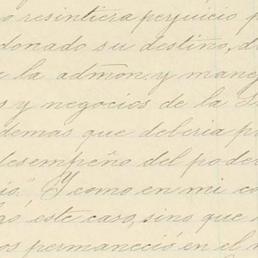 o resintiera perjuicio p
donado su destino, d
e la admon. y mane
s y negocios de la S
demas que deberia p
desempeño del pode
io." Y como en mi co
go este caso, sino que
os permaneció en el